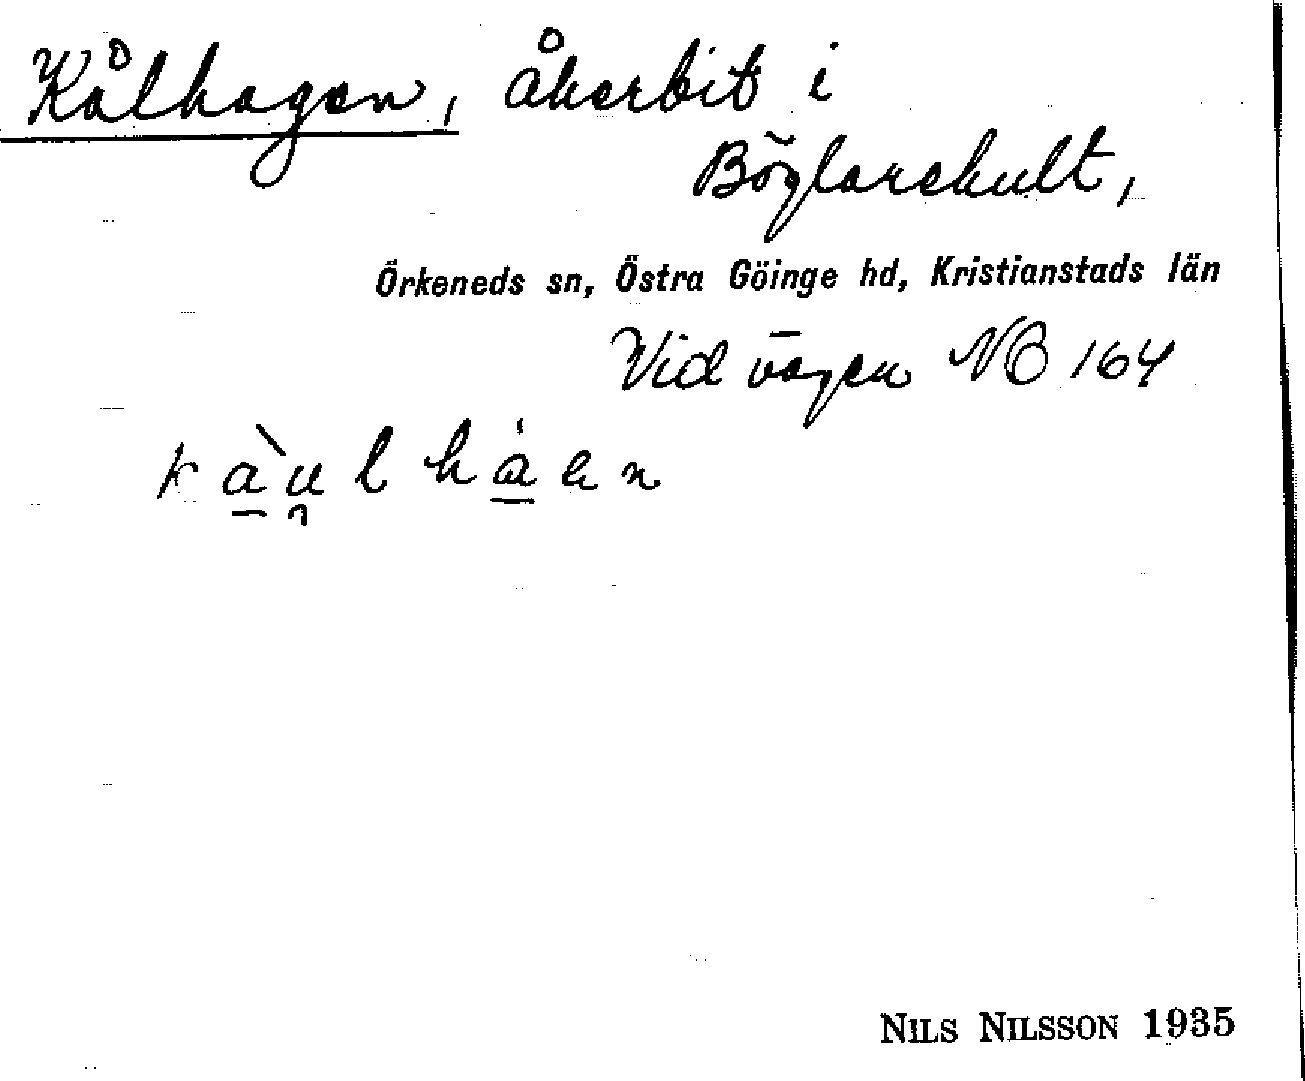 Kålhagen, åkerbit i
Böglarehult,
Örkeneds sn, Östra Göinge hd, Kristianstads län
Vid vägen NB 164
kàu̯lhàen
NILS NILSSON 1935